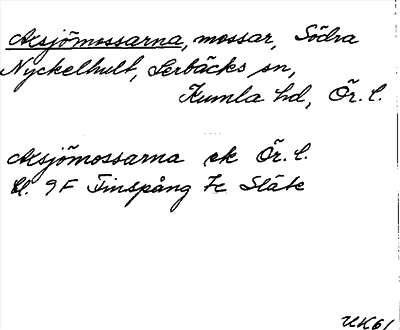 Axsjömossarna, mossar, Södra
Nyckelhult, Lerbäcks sn,
Kumla hd, Ör. l.
Axsjömossarna ek Ör. l.
Bl. 9F Finspång 7c Släte
UK61